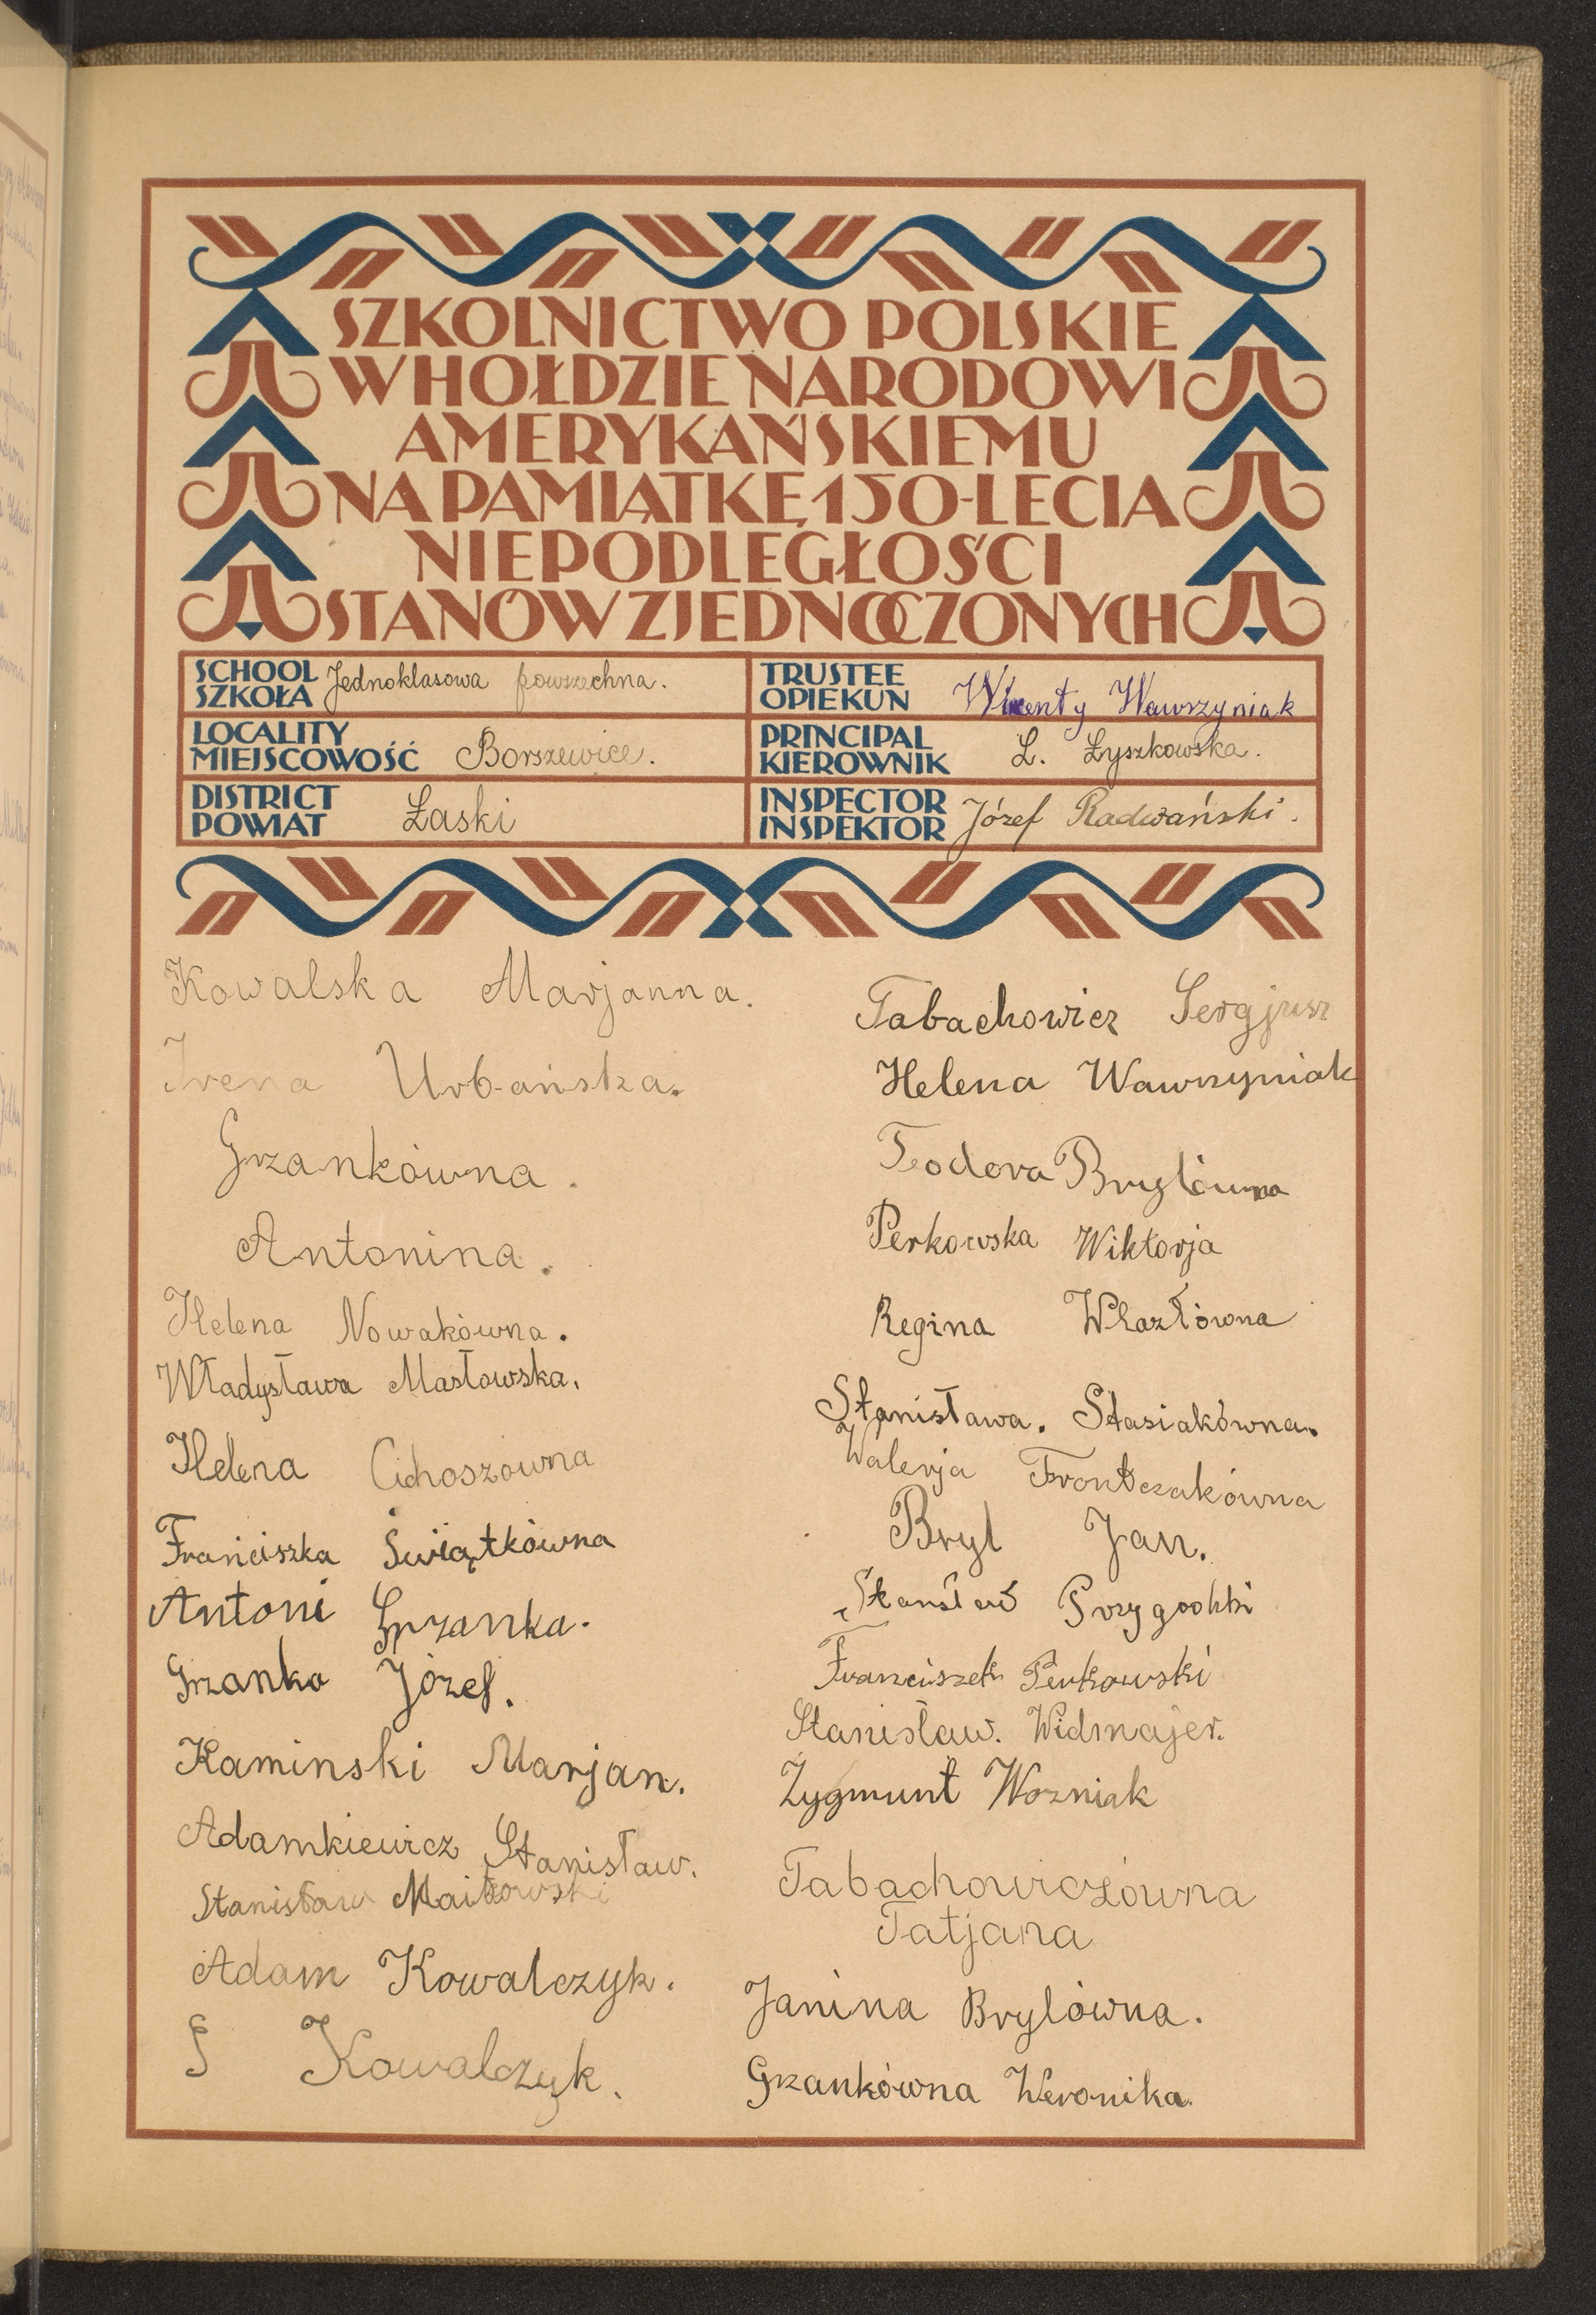 SZKOLNICTWO POLSKIE
W HOŁDZIE NARODOWI
AMERYKAŃSKIEMU
NA PAMIĄTKĘ 150-LECIA
NIEPODLEGŁOŚCI
STANÓW ZJEDNOCZONYCH
SCHOOL
SZKOŁA Jednoklasowa powszechna.
TRUSTEE
OPIEKUN Wicenty Wawrzyniak
LOCALITY
MIEJSCOWOŚĆ Borszewice.
PRINCIPAL
KIEROWNIK Ł. Łyszkowska.
DISTRICT
POWIAT Łaski
INSPECTOR
INSPEKTOR Józef Radwański.
Kowalska Marjanna.
Irena Urbańska.
Grzankówna.
Antonina.
Helena Nowakówna.
Władysława Masłowska.
Helena Cichoszówna
Franciszka Świątkówna
Antoni Grzanka.
Grzanka Józef.
Kaminski Marjan.
Adamkiewicz Stanisław.
Stanisław
Adam Kowalczyk.
Kowalczyk.
Tabachowicz Sergjusz
Helena Wawrzyniak
Teodora Brylówna
Perkowska Wiktorja
Regina Wlazłówna
Stanisława. Stasiakówna.
Walerja Frontczakówna
Bryl Jan.
Franciszek Perkowski
Stanisław. Widmajer.
Zygmunt Wozniak
Tabachowiczówna
Tatjana
Janina Brylówna.
Grzankówna Weronika.